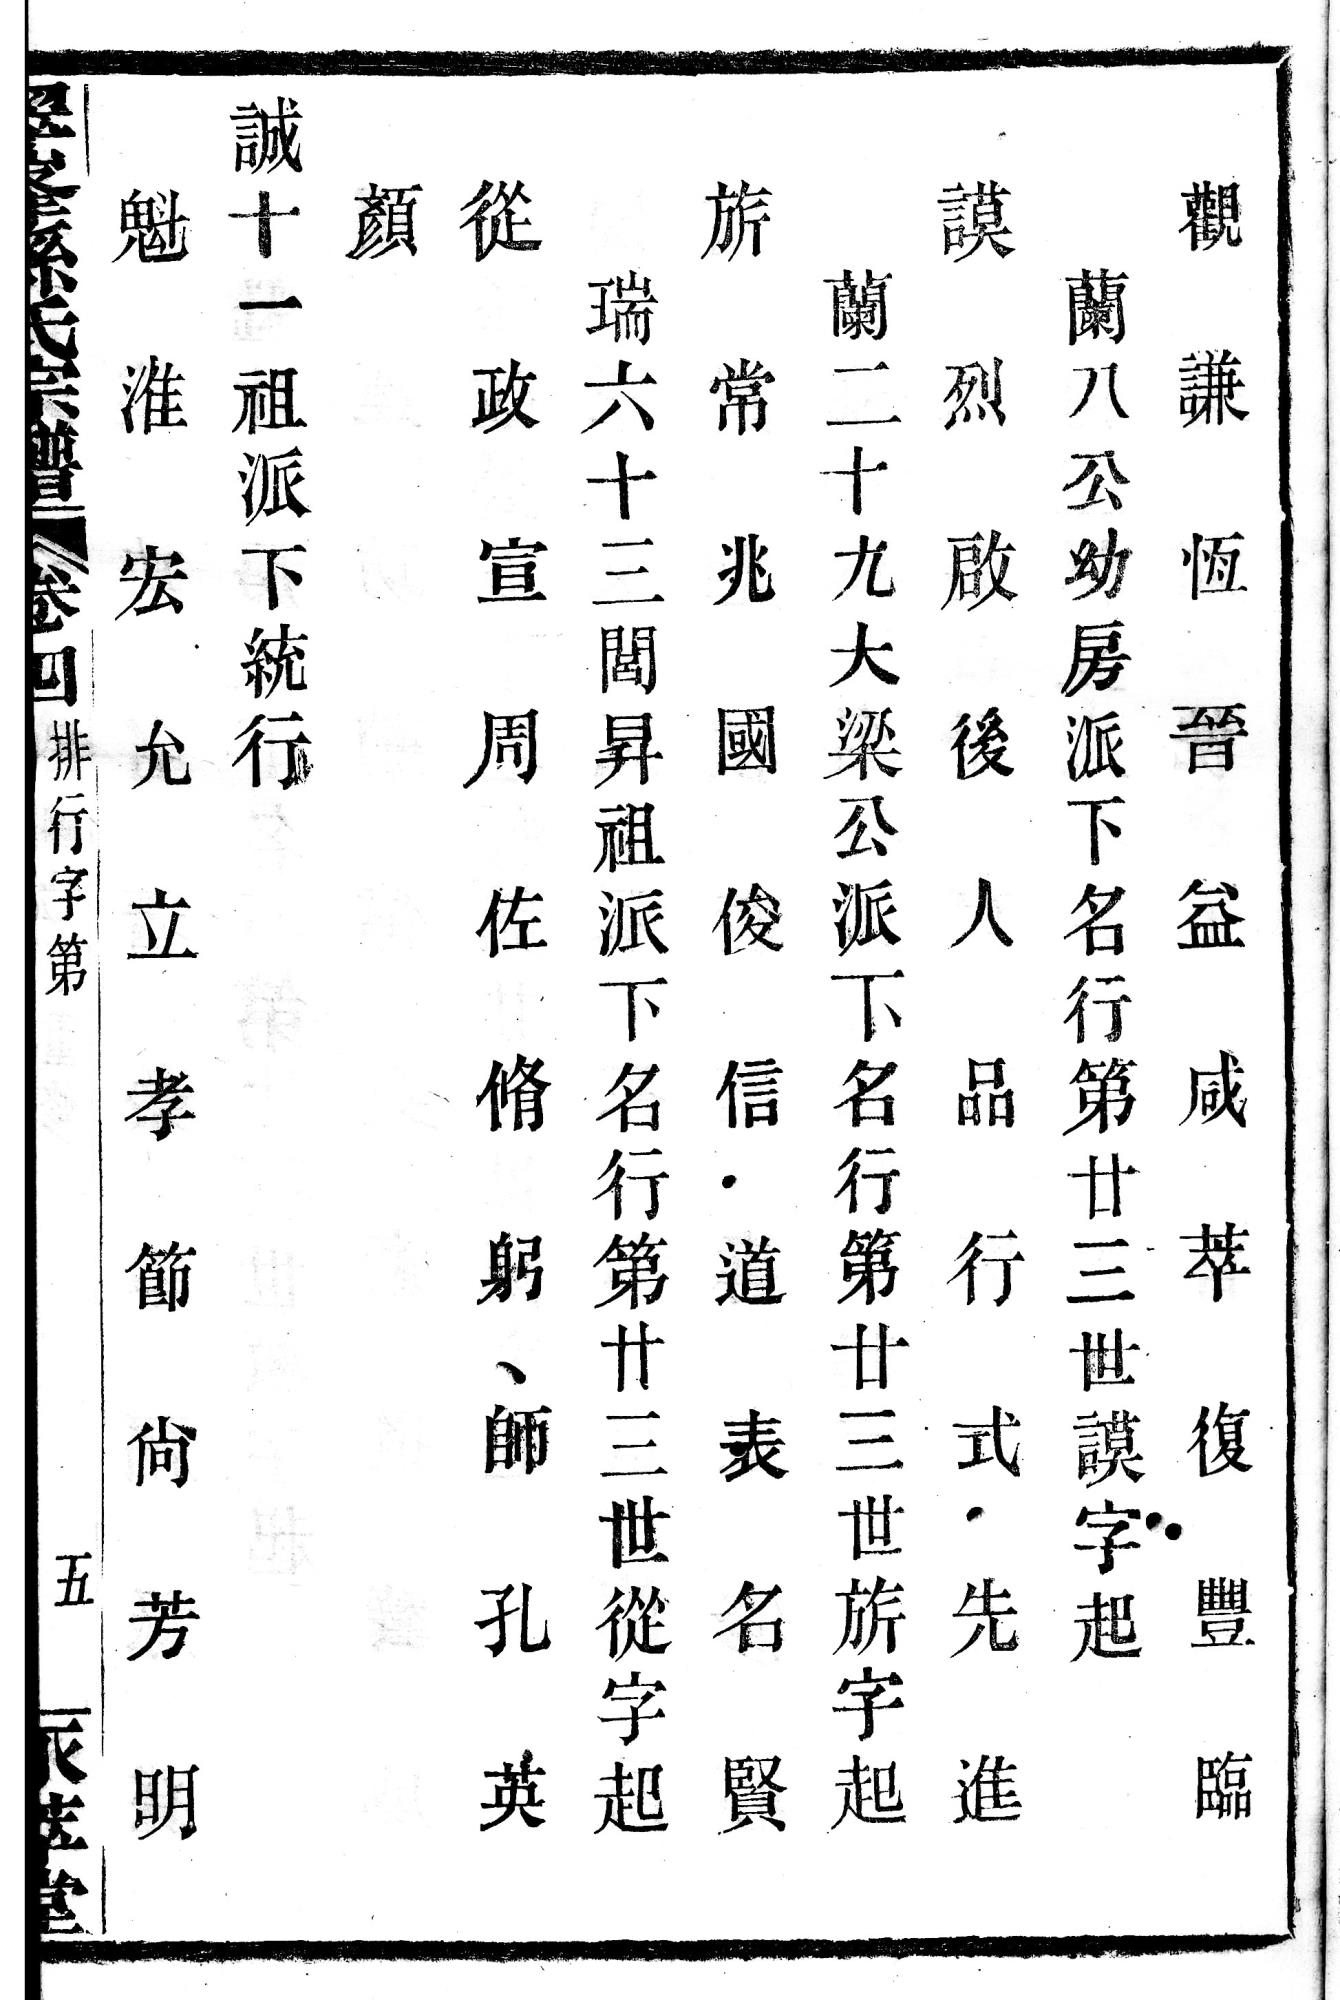 觀謙恆晉益咸萃復豐臨
蘭八公幼房派下名行第廿三世謨字起
謨烈啟後人品行式先進
蘭二十九大梁公派下名行第廿三世旂字起
旂常兆國俊信道表名賢
瑞六十三閭昇祖派下名行第廿三世從字起
從政宣周佐脩躬師孔英
顏
誠十一祖派下統行
魁淮宏允立孝節尙芳明
氏宗譜 卷四 排行字第 五 堂